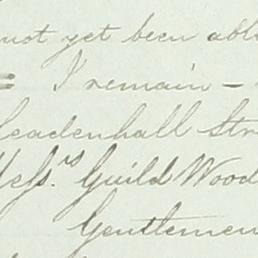 not yet been abl
= I remain –
Leadenhall Stre
Mess.rs Guild Wood
Gentlemen